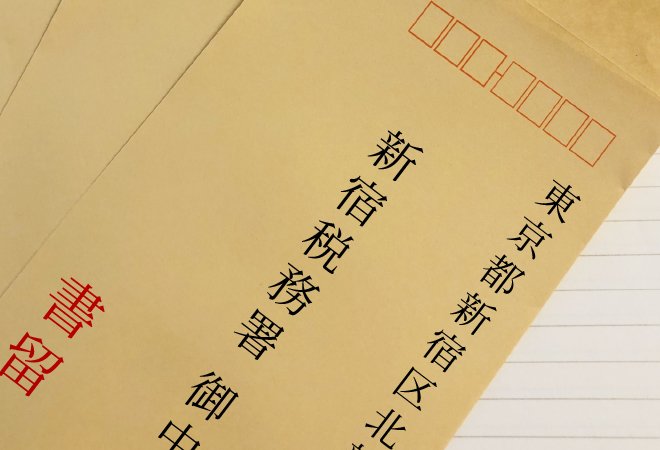 東京都新宿区北
新宿税務署 御中
書留